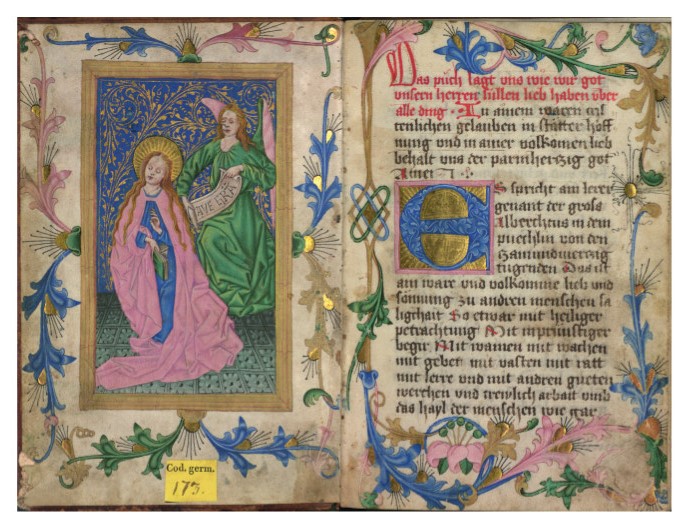 AVE GRA
Cod. germ.
173.
Das püch sagt vns wie wir got
vnsern herren süllen lieb haben über
alle ding · In ainem waren
tenlichen gelauben in stätter hoff
nung vnd in ainer volkomen lieb
behalt vns der parmherczig got
Amen
Es spricht ain lerer
genant der gross
Albertus in dem
puechlin von den
tugenden Das ist
ain ware vnd volkomne lieb vnd
zu andren menschen sa
ligkait So etwar mit heiliger
petrachtung Mit inprünstiger
begir Mit wainen mit wachen
mit gebet mit vasten mit ratt
mit lerre vnd mit andren gueten
werchen vnd trewlich arbait vmb
das hayl der menschen wie gar